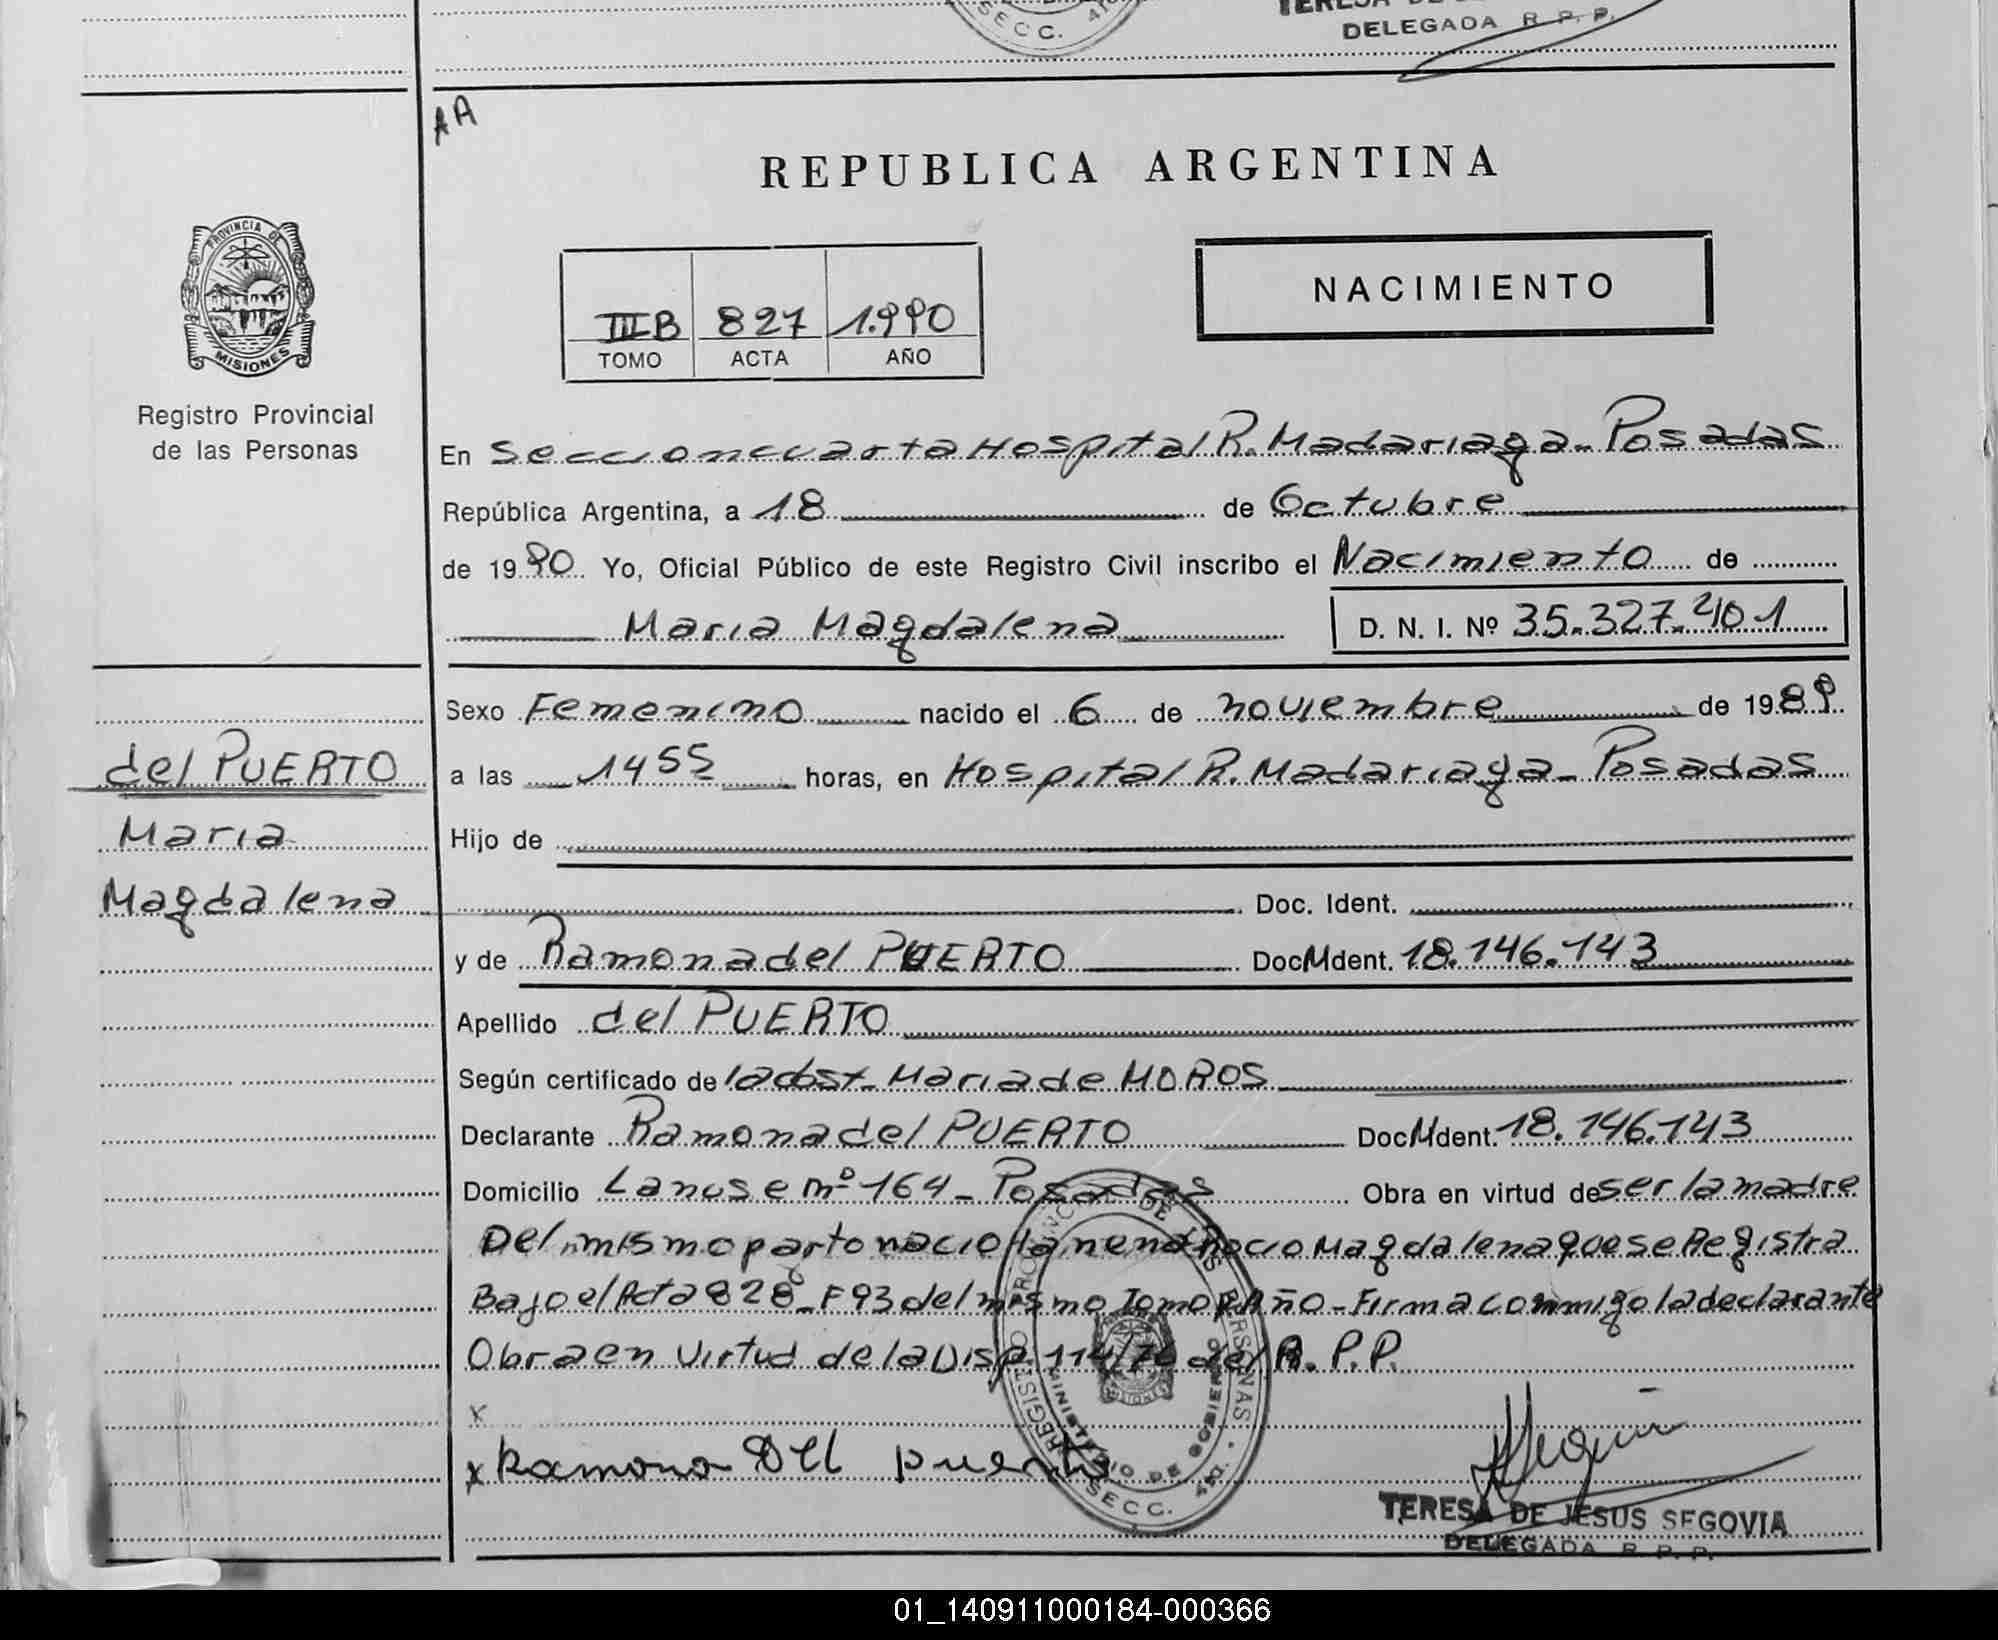 SECC.
DELEGADA R. P. P.
AA
REPUBLICA ARGENTINA
PROVINCIA DE
MISIONES
NACIMIENTO
III B 827 1.990
TOMO ACTA AÑO
Registro Provincial
de las Personas
En Seccion cuarta Hospital R. Madariaga - Posadas
República Argentina, a 18 de Octubre
de 1990 Yo, Oficial Público de este Registro Civil inscribo el Nacimiento de
Maria Magdalena D. N. I. Nº 35.327.401
Sexo Femenino nacido el 6 de noviembre de 1989
del PUERTO
a las 14 55 horas, en Hospital R. Madariaga - Posadas
Maria
Hijo de
Magdalena
Doc. Ident.
y de Ramona del PUERTO Doc M Ident. 18.146.143
Apellido del PUERTO
Según certificado de la obst. Maria de MOROS
Declarante Ramona del PUERTO Doc M Ident. 18.146.143
Domicilio Lanuse nº 164 - Posadas Obra en virtud de ser la madre
Del mismo parto nacio la nena Rocio Magdalena que se Registra
Bajo el Acta 828 - F 93 del mismo Tomo y Año - Firma conmigo la declarante
Obra en Virtud de la Disp. 114/76 del R. P. P.
x
x Ramona Del puerto
REGISTRO PROVINCIAL DE LAS PERSONAS
MINISTERIO DE GOBIERNO
SECC. 4ta.
TERESA DE JESUS SEGOVIA
DELEGADA R. P. P.
01_140911000184-000366